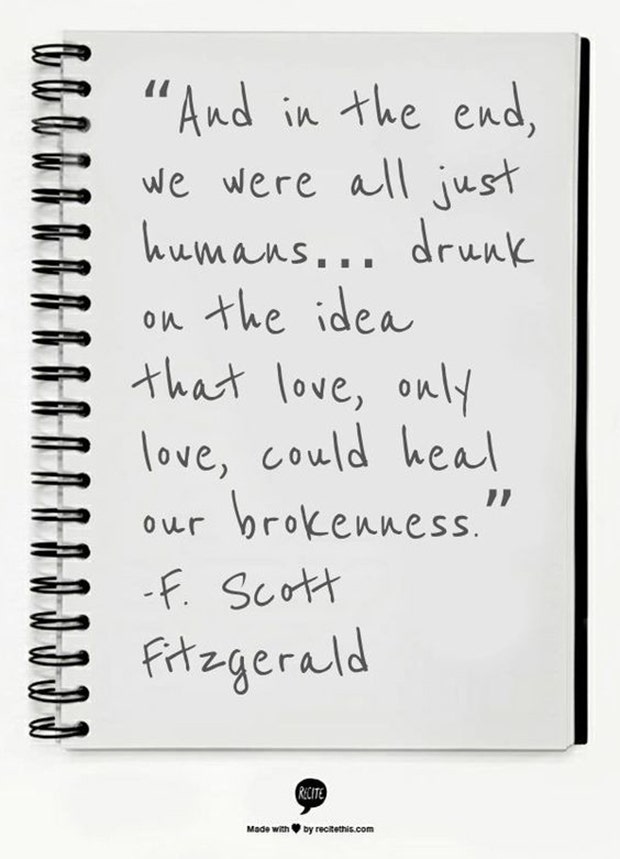 “And in the end,
we were all just
humans... drunk
on the idea
that love, only
love, could heal
our brokenness.”
-F. Scott
Fitzgerald
RECITE
Made with ♥ by recitethis.com